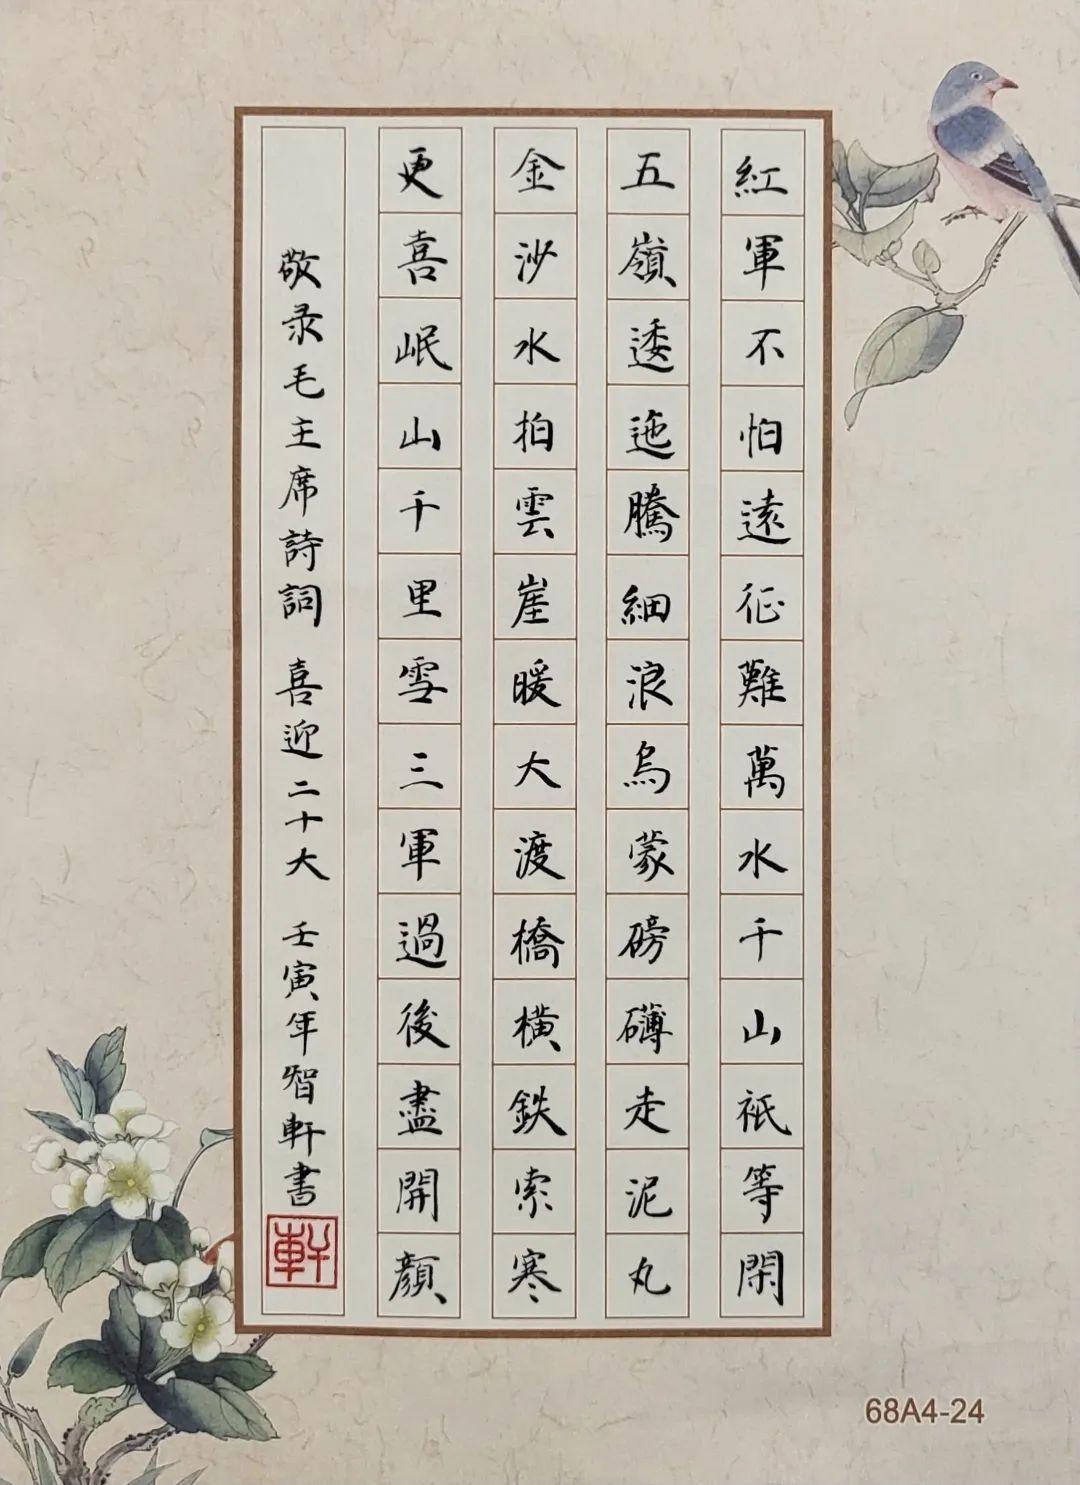 紅軍不怕遠征難萬水千山祇等閑
五嶺逶迤騰細浪烏蒙磅礴走泥丸
金沙水拍雲崖暖大渡橋橫鉄索寒
更喜岷山千里雪三軍過後盡開顏
敬录毛主席詩詞 喜迎二十大 壬寅年智軒書
軒
68A4-24